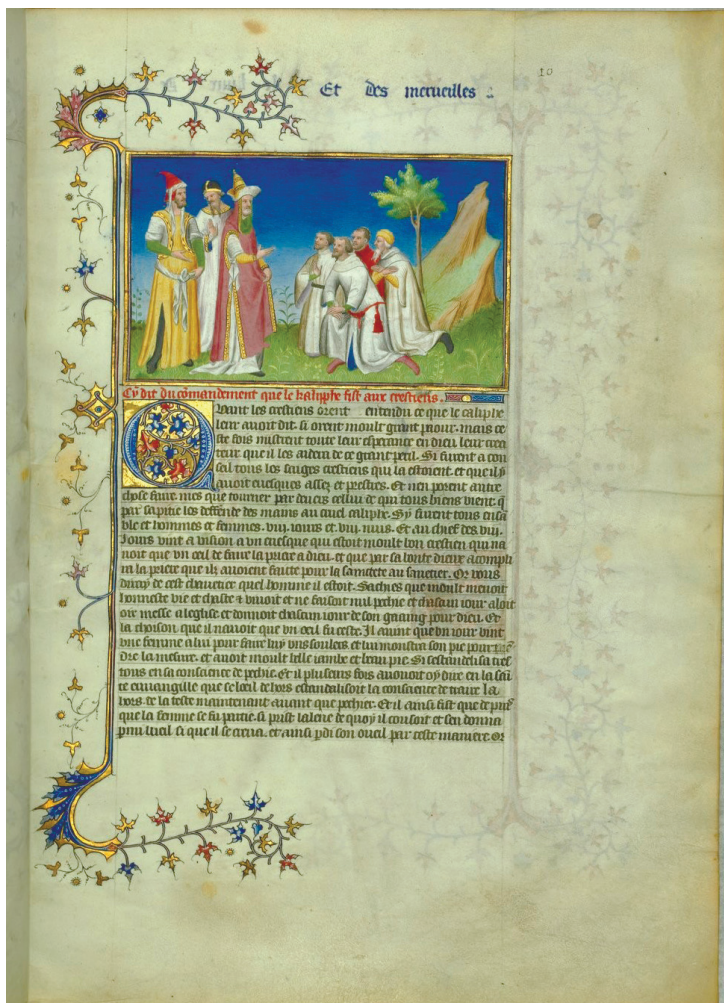 10
Et des merueilles
Cy dit du cōmandement que le kalyphe fist aux crestiens.
Quant les crestiens orent entendu ce que le caliphe
leur auoit dit. si orent moult grant paour. mais ce
ste fois mistrent toute leur esperance en dieu leur crea
teur que il les aidera de ce grant peril. Si furent a con
seil tous les sauges crestiens qui la estoient. et que il y
auoit euesques assez et prestres. Et nen porent autre
chose faire. mes que tourner par deuers cellui de qui tous biens vient. q̄
par sa pitie les deffende des mains au cruel caliphe. Sy furent tous ensā
ble et hommes et femmes. viij. iours et viij. nuis. Et au chief des viij.
Jours vint a vision a vn euesque qui estoit moult bon crestien qui
que vn oeil de faire la priere a dieu. et que par sa bonte dieux acompli
ra la priere que ilz auoient faicte pour la sainctete au sauetier. Or vous
diray de cest chauetier quel homme il estoit. Sachies que moult menoit
honneste vie et chaste et iunoit et ne faisoit nul pechie et chascun iour aloit
oir messe a leglise et donnoit chascun iour de son gaaing pour dieu. Et
la choison que il nauoit que vn oeil fu ceste. Il auint que vn iour vint
vne femme a lui pour faire luy vns soulers et lui monstra son pie pour
dre la mesure. et auoit moult belle iambe et beau pie. Si sescandelisa tres
tous en sa conscience de pechie. Et il plusieurs fois auouoit oy dire en la saī
te euuangille que se loeil dehors escandalisoit la conscience de traire la
hors de la teste maintenant auant que pechier. Et il ainsi fist que de puis
que la femme se fu partie. si prist lalene de quoy il cousoit et sen donna
pmi lueil si que il se creua. et ainsi pdi son oueil par ceste maniere. Or